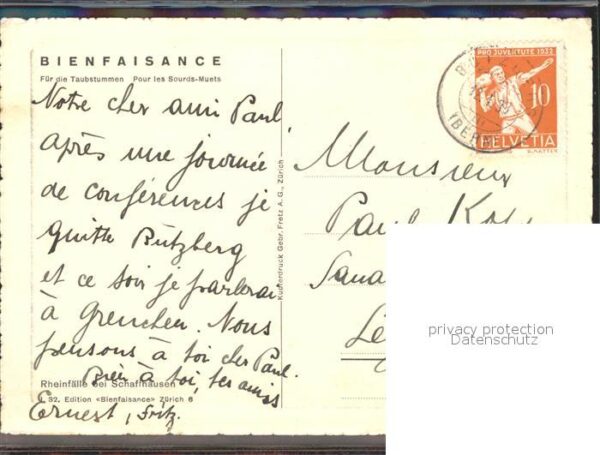 BIENFAISANCE
Für die Taubstummen Pour les Sourds-Muets
Notre cher ami Paul
après une journée
de conférences je
quitte Rutzberg
et ce soir je parlerai
à Grenchen. Nous
pensons à toi cher Paul.
Bien à toi, tes amis
Ernest, Fritz.
Rheinfälle bei Schaffhausen
32. Edition «Bienfaisance» Zürich 6
Kupferdruck Gebr. Fretz A.G., Zürich
PRO JUVENTUTE 1932
10
HELVETIA
(BERN)
Monsieur
Paul
Sana
privacy protection
Datenschutz